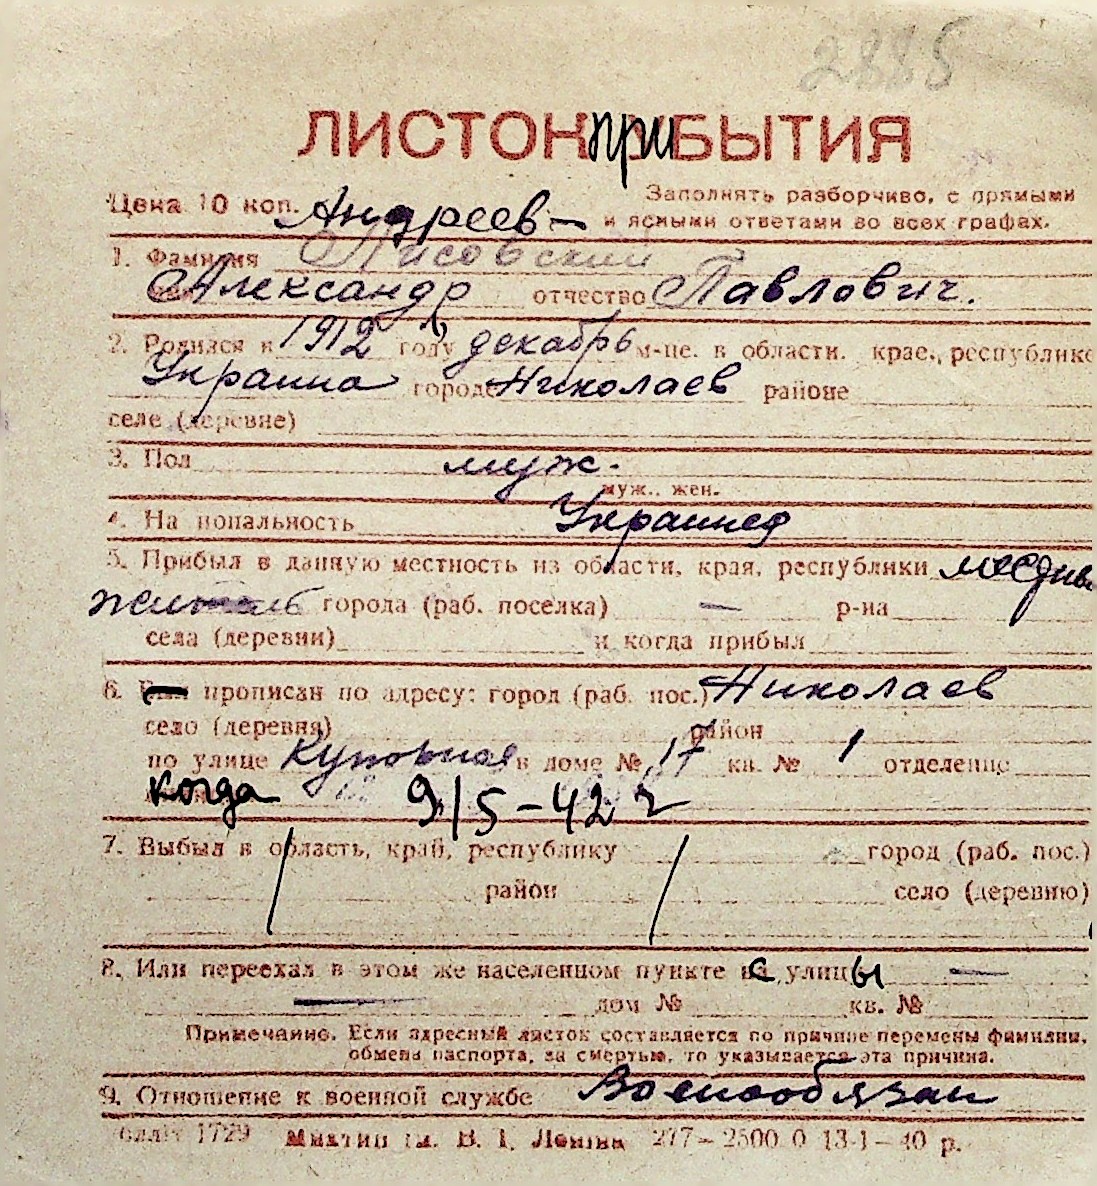 2885
ЛИСТОК ПРИБЫТИЯ
Цена 10 коп. Андреев- Заполнять разборчиво, с прямыми
и ясными ответами во всех графах.
1. Фамилия Лисовский
Александр отчество Павлович.
2. Родился в 1912 году декабрь м-це. в области. крае., республике
Украина городе Николаев районе
селе (деревне)
3. Пол муж.
муж.. жен.
4. На иональность Украинец
5. Прибыл в данную местность из области, края, республики
житель города (раб. поселка) — р-на
села (деревни) и когда прибыл
6. прописан по адресу: город (раб. пос.) Николаев
село (деревня) район
по улице в доме № 17 кв. № 1 отделение
когда 9/5-42 г
7. Выбыл в область, край, республику город (раб. пос.)
район село (деревню)
8. Или переехал в этом же населенном пункте с улицы —
— дом № кв. №
Примечание. Если адресный листок составляется по причине перемены фамилии,
обмена паспорта, за смертью, то указывается эта причина.
9. Отношение к военной службе Военнообязан
1729 В. І. Леніна 277—2500 0 13-1—40 р.